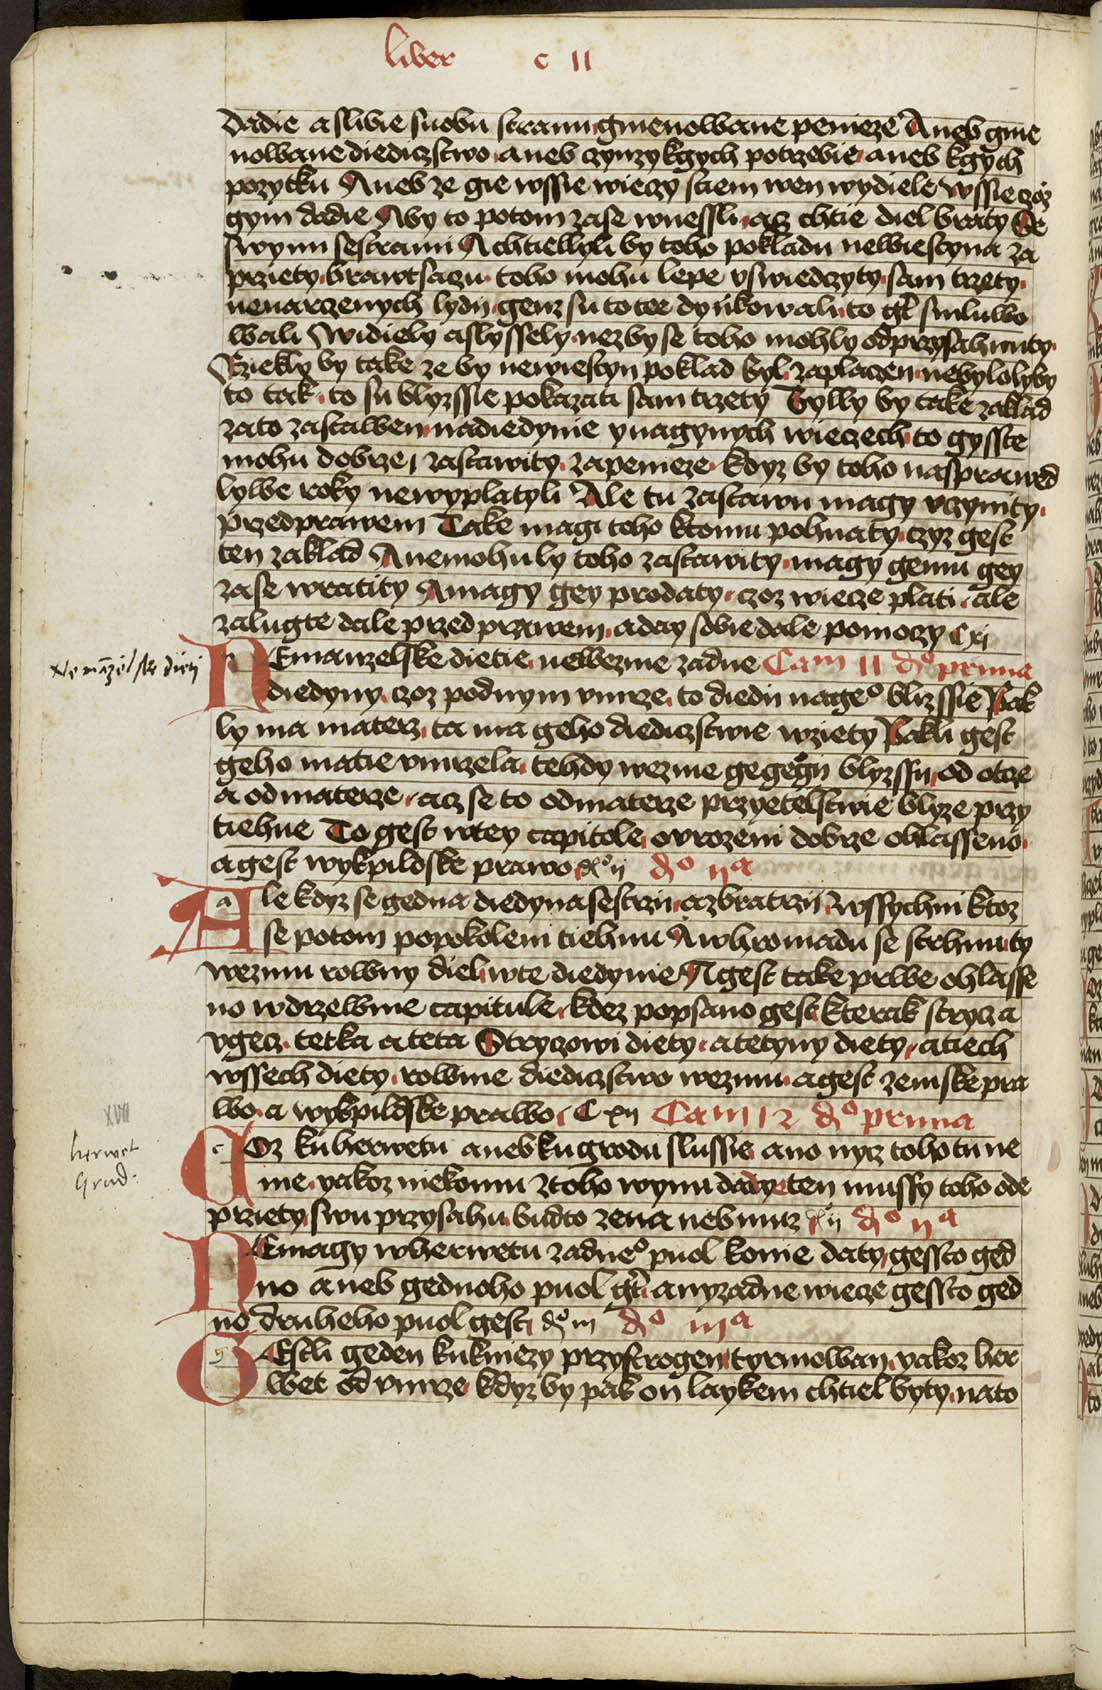 liber c II
dadie a slibie s nobu stranu gmenowane penieze Aneb gme
nowane diedicztwo aneb czynzy kgych potrzebie aneb kgych
pozytku Aneb ze gie wssie wieczy stiem wen wydiele wssie czoz
gym dadie Aby to potom zase wnessli acz chtie diel braty Se
swymi sestrami Achtiellyli by toho pokladu newiestyna za
przety brawtsazu toho mohu lepe vswiedczyty sam trzety
nenarzenych lydu genz su to tee dynkowali to gt smluwo
wali Widiely a slyssely nez by se toho mohly odprzysahnuty
Rziekly by take ze by newiestyn poklad byl zaplaczen nebyloly by
to tak to su blyzssie pokazati sam trzety Bylly by take zaklad
zato zastawen nadiedynie y nagynych wieczech to gyste
mohu dobrze zastawity zapenieze kdyz by toho naspraved
lywe roky newyplatyli Ale tu zastawu magy vczynity
przedprawem Take magi toho ktomu pohnaty czyz gest
ten zaklad Anemohu ly toho zastawity magy gemu gey
zase wratity Amagy gey prodaty czoz wiecze plati ale
zalugte dale przed prawem a day sobie dale pomoczy C xi
Nemanzelske dietie newezme zadne Cam II do prima
diedyny czoz podnym vmrze to diedi nageo blizssie Pak
ly ma materz ta ma geho diedicztwie wziety Pakli gest
geho matie vmrzela tehdy wezme gegegn blyzssy od otcze
a od materze acz se to odmaterze przyetelstwie blyze przy
tiehne To gest w tey capitole o vrozeni dobrze ohlasseno
a gest wykpildske prawo do ii do IIa
Ale kdyz se gedna diedyna sestrzii az bratrzii Wssychni ktoz
se potom popokoleni tiehnu Awhromadu se strhnuty
wezmu rowny diel wte diedynie Agest take prwe ohlasse
no wdrzewnie capitule kdez popsano gest kterak strycz a
vgecz tetka a teta Stryczowi diety a tetyny diety a tiech
wssech diety rowne diedicztwo wezmu a gest zemske pra
wo a wykpildske prawo C xii Cam 12 do prima
Coz kuherwetu aneb kugradu slussie ano nycz toho tu ne
nie yakoz niekomu z toho wynu dadye ten mussy toho ode
przety swu przysahu budto zena neb muz do ii do IIa
Nemagy wherwetu zadneo puol konie daty gessto ged
no aneb gednoho puol gt any zadne wiecze gessto ged
no druheho puol gest do iii do IIIa
Gestli geden kukniezy przystrogen tyrmowan yakoz her
wet od vmrze kdyz by pak on laykem chtiel byty nato
Nemazelske dieti
XVII
herwet
Grad: